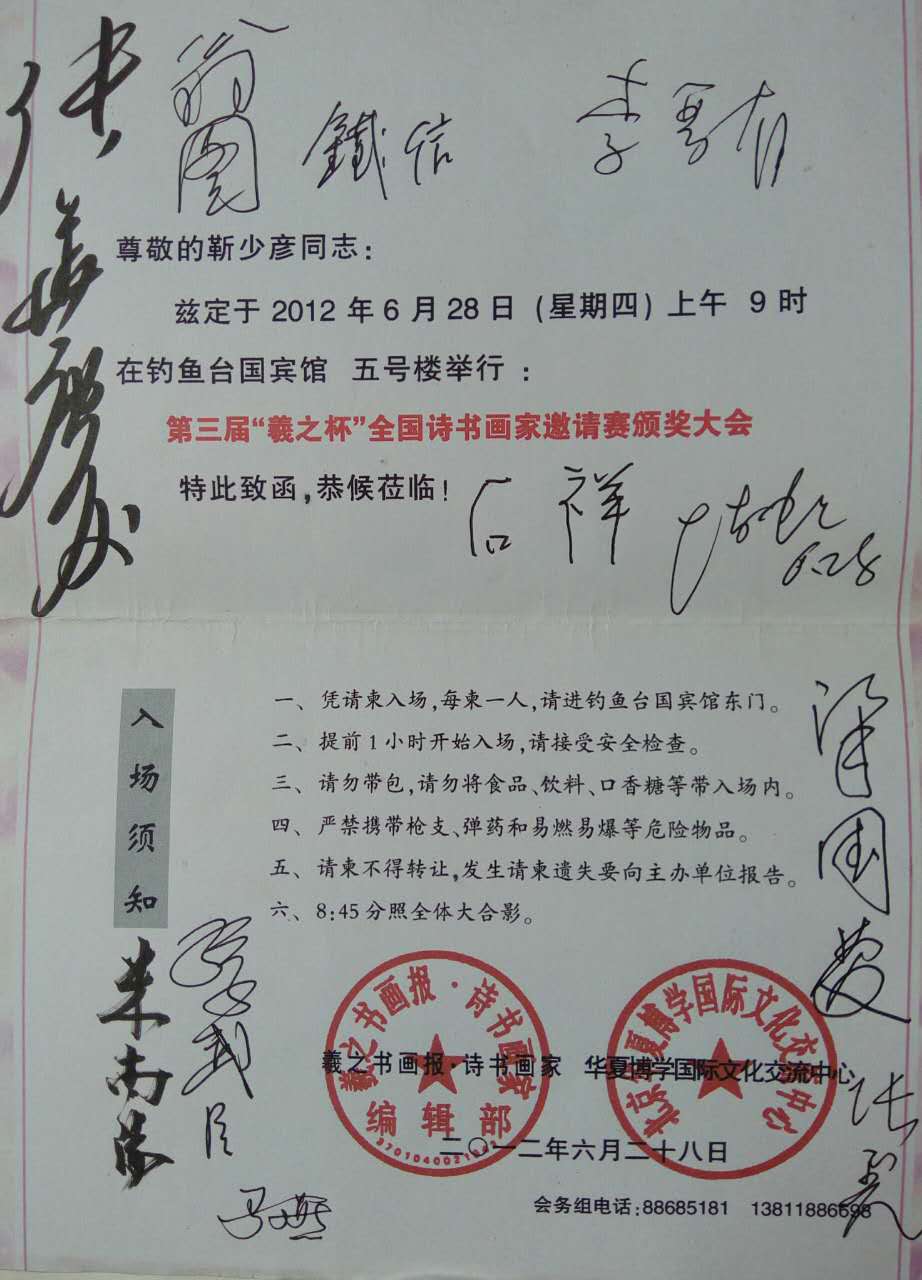 铁信
尊敬的靳少彦同志：
兹定于 2012 年 6 月 28 日 (星期四) 上午 9 时
在钓鱼台国宾馆 五号楼举行：
第三届“羲之杯”全国诗书画家邀请赛颁奖大会
特此致函,恭候莅临!
石祥
6.28
入场须知
一、凭请柬入场,每柬一人,请进钓鱼台国宾馆东门。
二、提前1小时开始入场,请接受安全检查。
三、请勿带包,请勿将食品、饮料、口香糖等带入场内。
四、严禁携带枪支、弹药和易燃易爆等危险物品。
五、请柬不得转让,发生请柬遗失要向主办单位报告。
六、8:45分照全体大合影。
羲之书画报·诗书画家
编辑部
北京华夏博学国际文化交流中心
羲之书画报·诗书画家 华夏博学国际文化交流中心
二〇一二年六月二十八日
会务组电话:88685181 13811886598